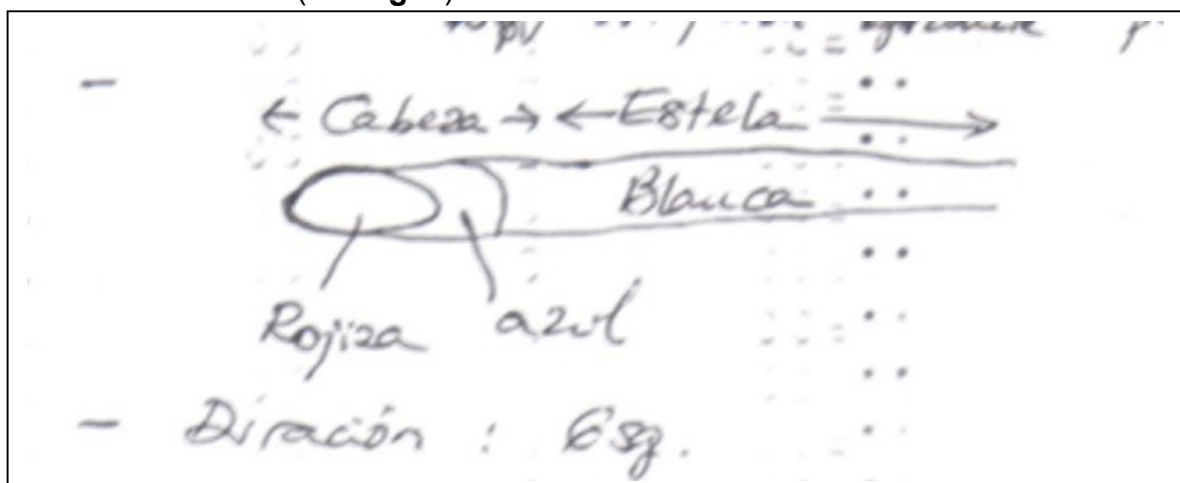 - ← Cabeza → ← Estela →
Blanca
Rojiza azul
- Duración : 6 sg.